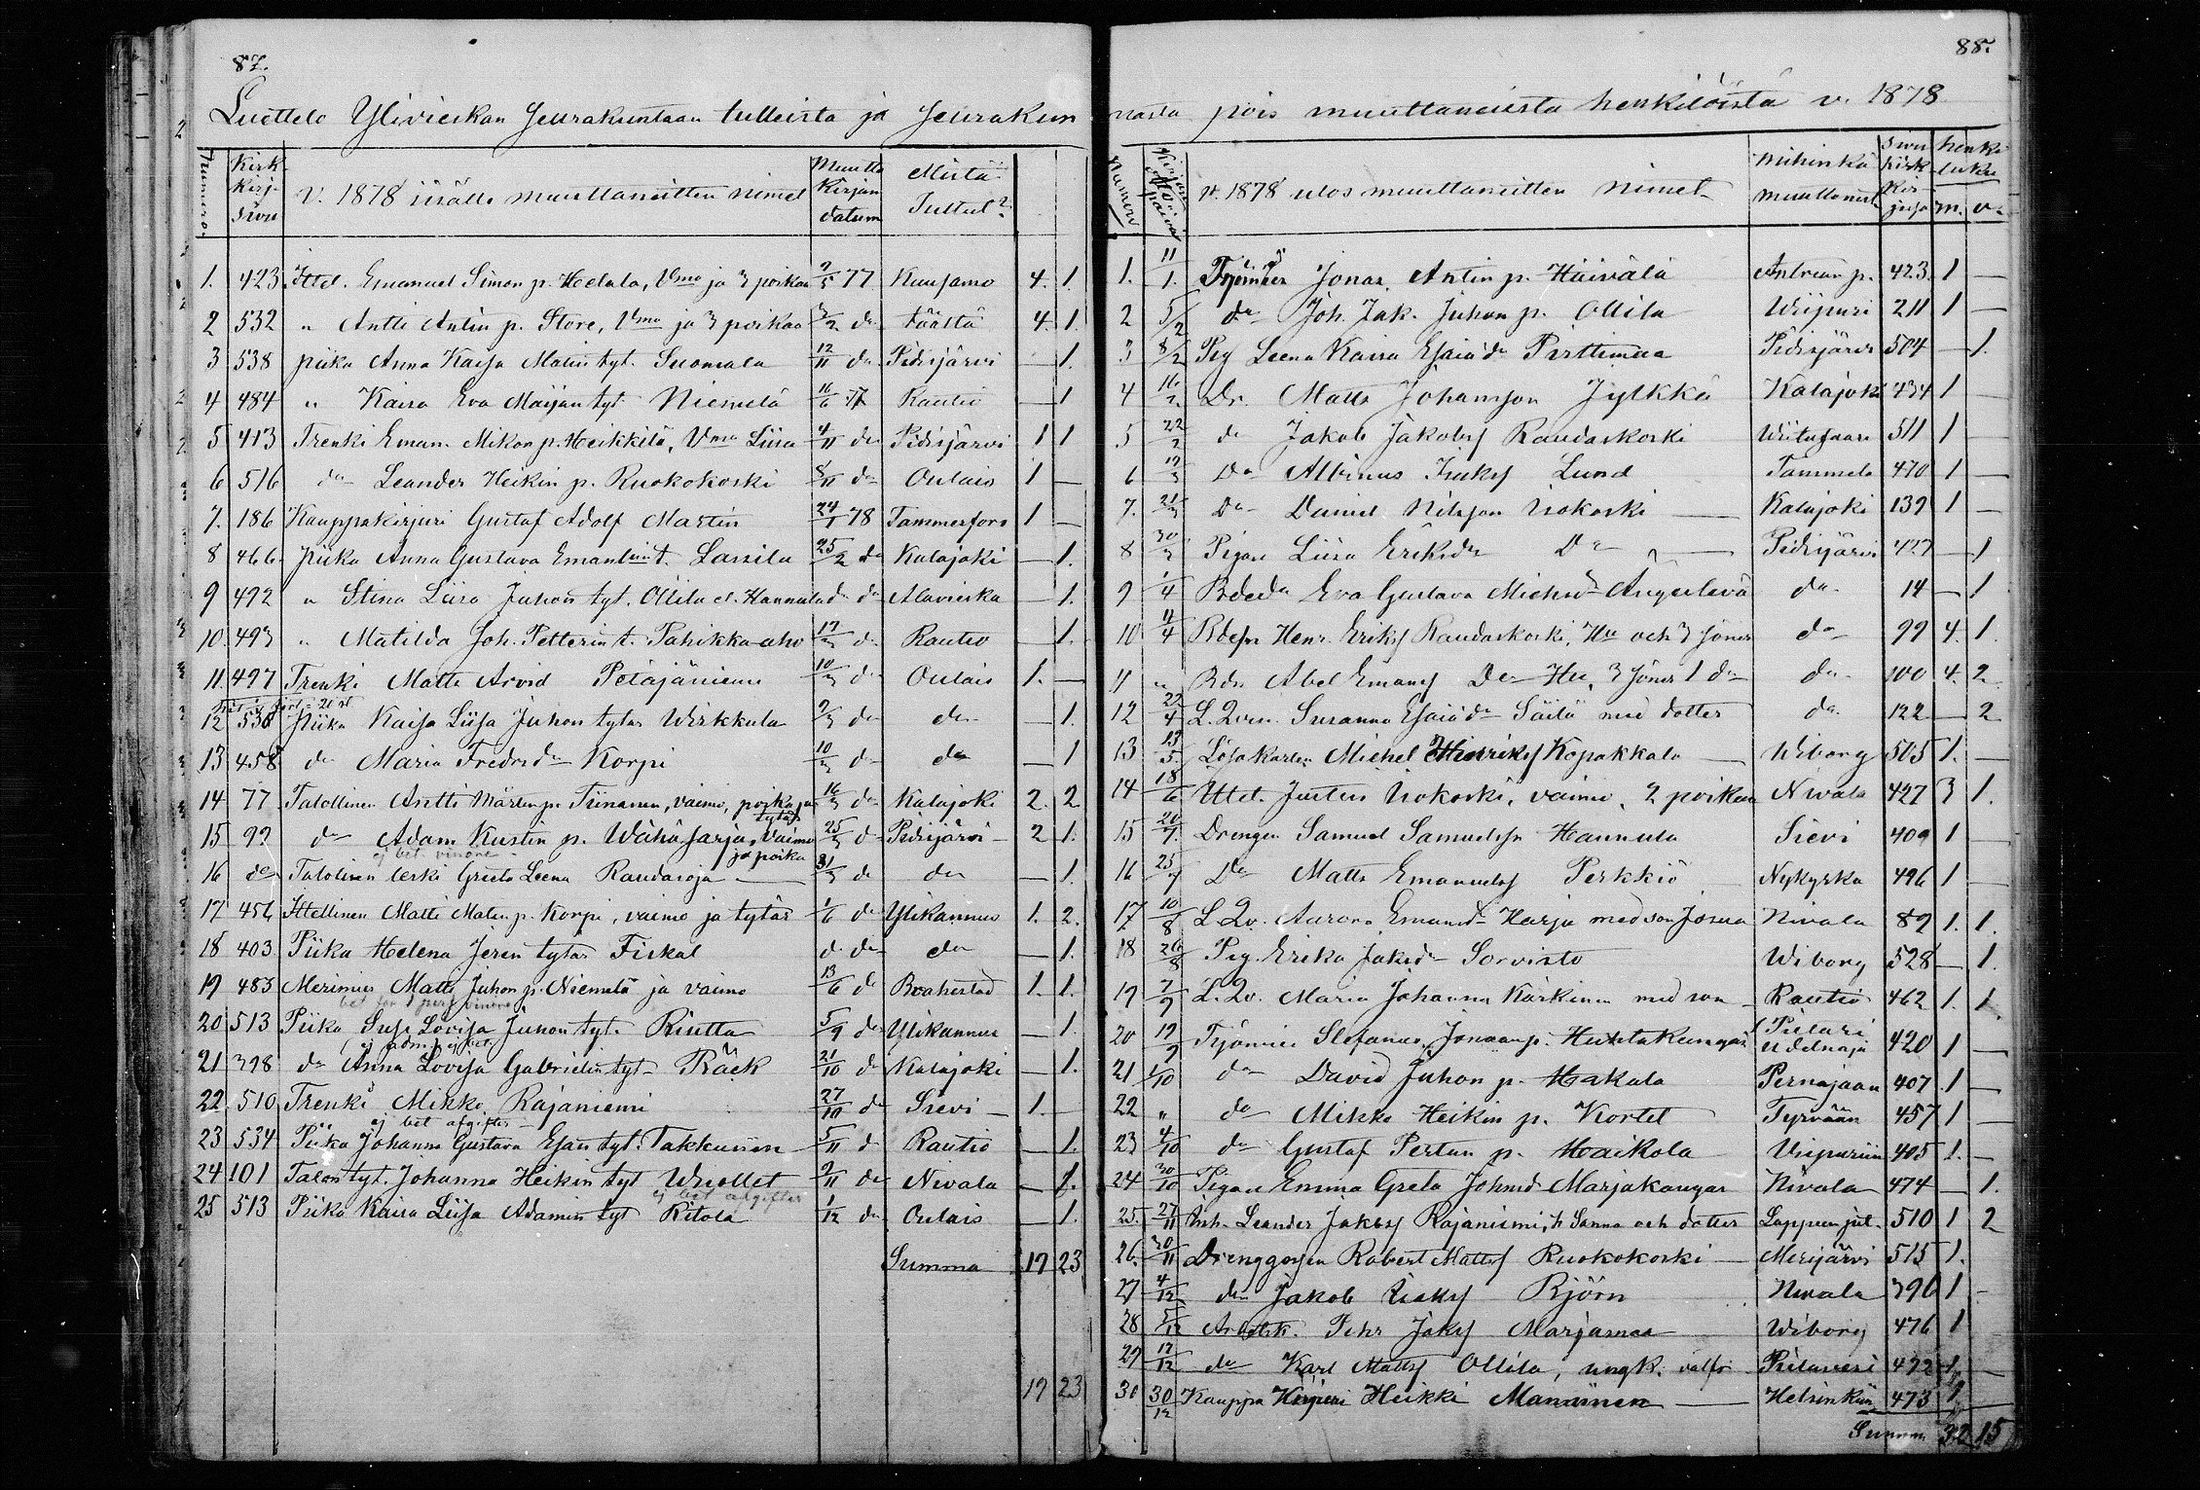 87.
Luettelo Ylivieskan Seurakuntaan tulleista ja Seurakun
Numero. Kirk. kirj. sivu V. 1878 sisälle muuttaneitten nimet Muutto Kirjan datum Mistä Tullut?
1. 423 Ittel. Emanuel Simon p. Helala, Vmo ja 3 poikaa 77 Kuusamo 4. 1.
2 532 " Antti Antin p. Store, Vmo ja 3 poikaa 3/2 do täältä 4. 1.
3 538 piika Anna Kaisa Matin tyt. Suomala 12/11 do Pidisjärvi — 1.
4 484 " Kaisa Eva Maijan tyt. Niemelä 16/6 77 Rautio — 1
5 413 Trenki Eman. Mikon p. Heikkilä, Vmo Liisa 4/11 do Pidisjärvi 1 1
6 516 do Leander Heikin p. Ruokokoski 8/11 do Oulais 1 —
7. 186 Kauppakirjuri Gustaf Adolf Martin 24/1 78 Tammerfors 1 —
8 466. Piika Anna Gustava Emanuelin t. Lassila 25/2 do Kalajoki — 1.
9 492 " Stina Liisa Juhon tyt. Ollila el. Hannula do do Alavieska — 1.
10. 493 " Matilda Joh. Petterin t. Pahikka-aho 17/3 do Rautio — 1.
11. 497 Trenki Matts Arvid Petäjäniemi 10/3 do Oulais 1. —
12 538 Piika Kaisa Liisa Juhon tytär Wirkkula 9/3 do do — 1.
13 458 do Maria Fredrdr Korpi 10/3 do do — 1
14 77 Talollinen Antti Mårten p. Tiinanen, vaimo, poika ja tytär 16/3 do Kalajoki 2. 2
15 99 do Adam Kustin p. Wähäsarja, Vaimo ja poika 25/3 do Pidisjärvi 2 1.
16 do Talolisen leski Greeta Leena Raudasoja 31/3 do do — 1.
17 456 Ittellinen Matti Matin p. Korpi, vaimo ja tytär 1/6 do Ylikannus 1. 2.
18 403 Piika Helena Jeren tytär Fiskal do do do — 1.
19 483 Merimies Matti Juhon p. Niemelä ja vaimo 13/6 do Brahestad 1. 1.
20 513 Piika Susa Lovisa Juhon tyt. Rintta 5/9 do Ylikannus — 1.
21 398 do Anna Lovisa Gabrielin tyt. Räck 21/10 do Kalajoki — 1.
22. 510 Trenki Mikko Rajaniemi 27/10 do Sievi — 1. —
ej bet afgifter
23 534 Piika Johanna Gustava Esan tyt. Takkunen 5/11 do Rautio — 1.
24 101 Talon tyt. Johanna Heikin tyt Wriollet 9/11 do Nivala — 1.
ej bet afgifter
25 513 Piika Kaisa Liisa Adamin tyt Ritola 1/12 do Oulais — 1.
Summa 19 23
19 23
88.
nasta pois muuttaneista henkilöistä v. 1878
Numero Kirjan päivä V. 1878 ulos muuttaneitten nimet mihinkä muuttaneet Sivu kirk kirjassa henkiluku m. v.
1. 11/1. Jonas Antin p. Häivälä Antrean p. 423. 1 —
2 5/2 do Joh. Jak. Juhon p. Ollila Wiipuri 211 1
3 8/2 Pig Leena Kaisa Esaiädr Pirttimaa Pidisjärvi 504 — 1.
4 16/2 Dr. Matts Johansson Jylkkä Kalajoki 434 1 —
5 22/2 do Jakob Jakobss Raudaskoski Wiitasaari 511 1 —
6 19/3 Do Albinus Isakss Lund Tammela 470 1 —
7. 21/3 Do Daniel Nilsson Isokoski Kalajoki 139 1 —
8 30/3 Pigan Liisa Eriksdr Do Pidisjärvi 427 — 1
9 1/4 Bdedr Eva Gustava Michelsdr Ängeslevä do 14 — 1
10 11/4 Bdesn Henr. Erikss Raudaskoski, Hu och 3 söner do 99 4. 1
11 " Bdn Abel Emanss Do Hu, 3 söner 1 dr do 100 4. 2
12 22/4 L. Qvin. Susanna Esaiädr Säilä med dotter do 122 — 2
13 13/5. Löskarlen Michel Hinrikss Kopakkala Wiborg 505 1. —
14 18/6 Ittel. Justus Isokoski, vaimo, 2 poikaa Nivala 427 3 1.
15 20/7. Drengen Samuel Samuelsn Hannula Sievi 409 1 —
16 25/7 Do Matts Emanuelss Perkkiö Nykyrka 496 1 —
17 10/8 L. Qv. Aurora Emansdr Harju med son Josua Nivala 89 1. 1.
18 26/8 Pig. Erika Jaksdr Sorvisto Wiborg 528 — 1.
19 7/9 L. Qv. Maria Johanna Kärkinen med son Rautio 462 1. 1
20 19/9 Työmies Stefanus Jonaan p. Huhtakangas 420 1 —
21 1/10 do David Juhon p. Hakala Pernajaan 407 1 —
22 " do Mikko Heikin p. Kortet Tyrvään 457 1 —
23 4/10 do Gustaf Pertun p. Haikola Viipuriin 405 1. —
24 30/10 Pigan Emma Greta Johnsd. Marjakangas Nivala 474 — 1.
25. 27/11 Inh. Leander Jakobss Rajaniemi, h Sanna och dotter 510 1 2
26. 30/11 Drenggossen Robert Mattss Ruokokoski Merijärvi 515 1.
27 4/12 do Jakob Isakss Björn Nivala 390 1 —
28 5/12 Arbetsk. Pehr Jakss Marjamaa Wiborg 476 1
29 17/12 do Karl Mattss Ollila, ungk. Pielavesi 472 1 —
30 30/12 Kauppa Kirjuri Heikki Manninen Helsinkiin 473 1
Summa 32 15